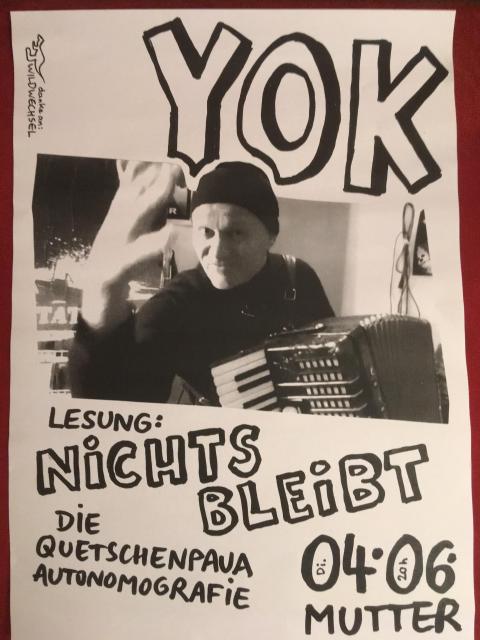 danke an:
WILDWECHSEL
YOK
R
TÄT
LESUNG:
NiCHTS
BLEiBT
DiE
QUETSCHENPAUA
AUTONOMOGRAFiE
Di. 04.06. 20h
MUTTER